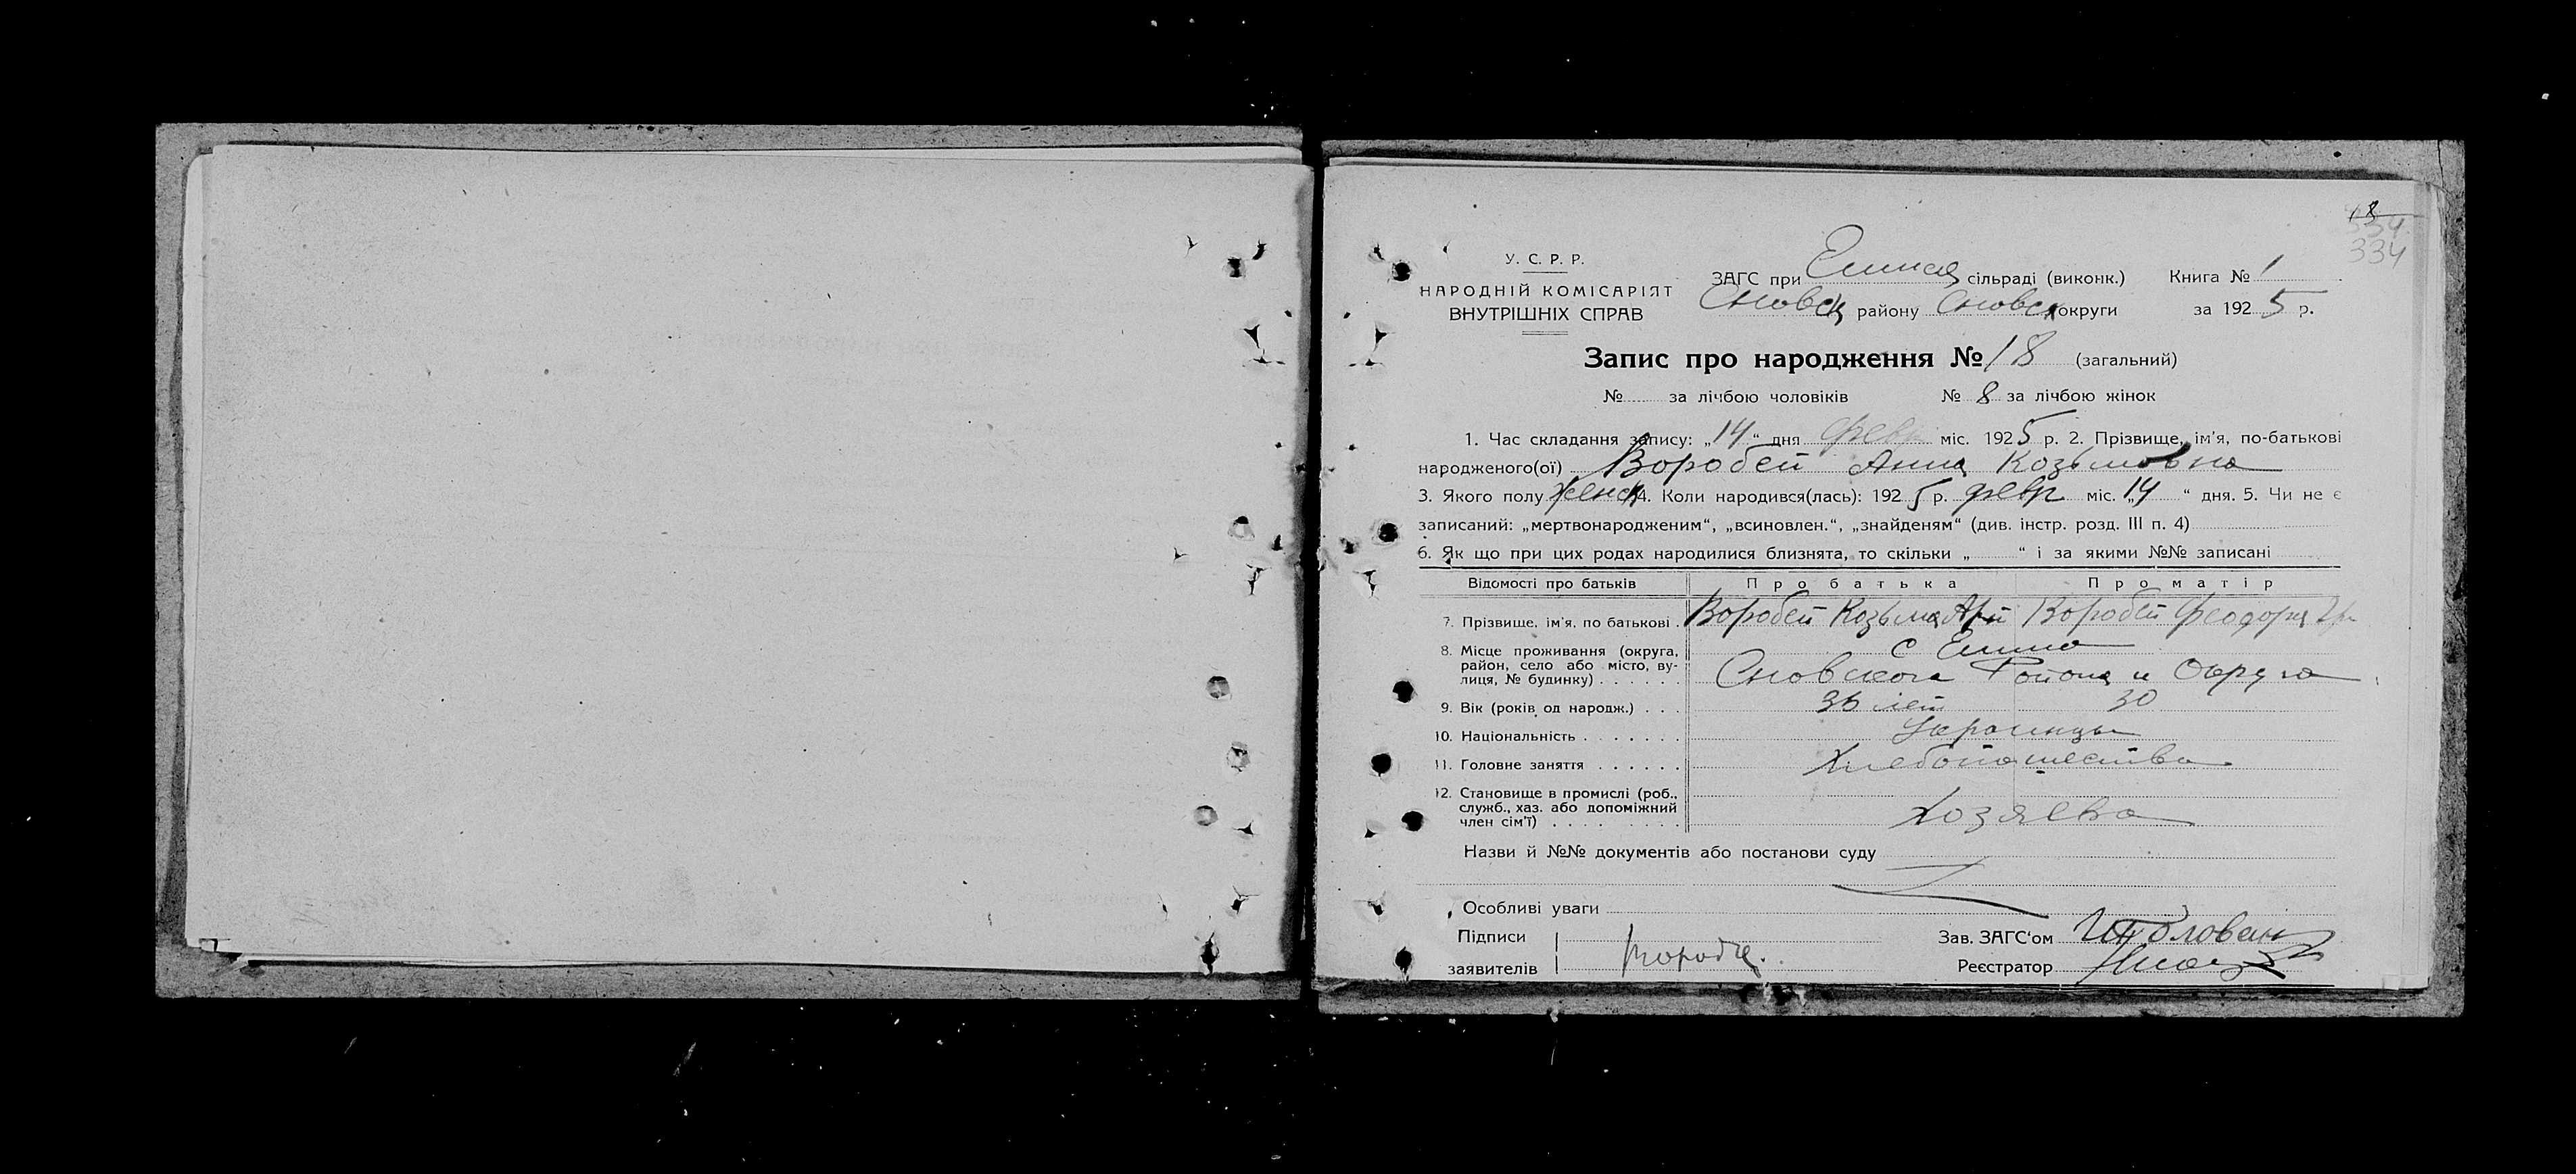 18
334
334
У. С. Р. Р.
НАРОДНІЙ КОМІСАРІЯТ
ВНУТРІШНІХ СПРАВ
ЗАГС при сільраді (виконк.) Книга № 1
Сновск району Сновск округи за 1925 р.
Запис про народження № 18 (загальний)
№ за лічбою чоловіків № 8 за лічбою жінок
1. Час складання запису: „14“ дня февр міс. 1925 р. 2. Прізвище, ім'я, по-батькові
народженого(ої) Воробей Анна Козьмовна
3. Якого полу женск 4. Коли народився(лась): 1925 р. февр міс. „14“ дня. 5. Чи не є
записаний: „мертвонародженим“, „всиновлен.“, „знайденям“ (див. інстр. розд. III п. 4)
6. Як що при цих родах народилися близнята, то скільки „ “ і за якими №№ записані
Відомості про батьків Про батька Про матір
7. Прізвище, ім'я, по батькові . Воробей Козьма Воробей Феодора
8. Місце проживання (округа, с Елино
район, село або місто, ву- Сновского Района и Округа
лиця, № будинку) . . . . . .
9. Вік (років од народж.) . . . 36 лет 30
10. Національність . . . . . . . Украинцы
11. Головне заняття . . . . . . Хлебопашество
12. Становище в промислі (роб.,
служб., хаз. або допоміжний Хозяева
член сім'ї) . . . . . . . . .
Назви й №№ документів або постанови суду
Особливі уваги
Підписи Зав. ЗАГС'ом
заявителів Реєстратор